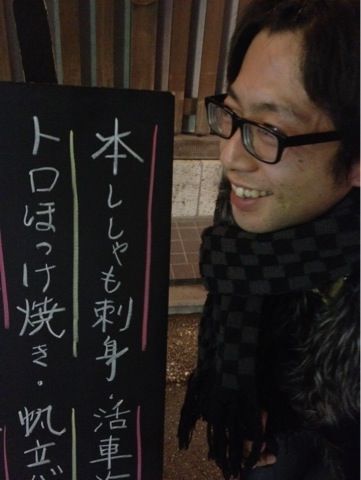 本ししゃも刺身・活車海
トロほっけ焼き・帆立バ